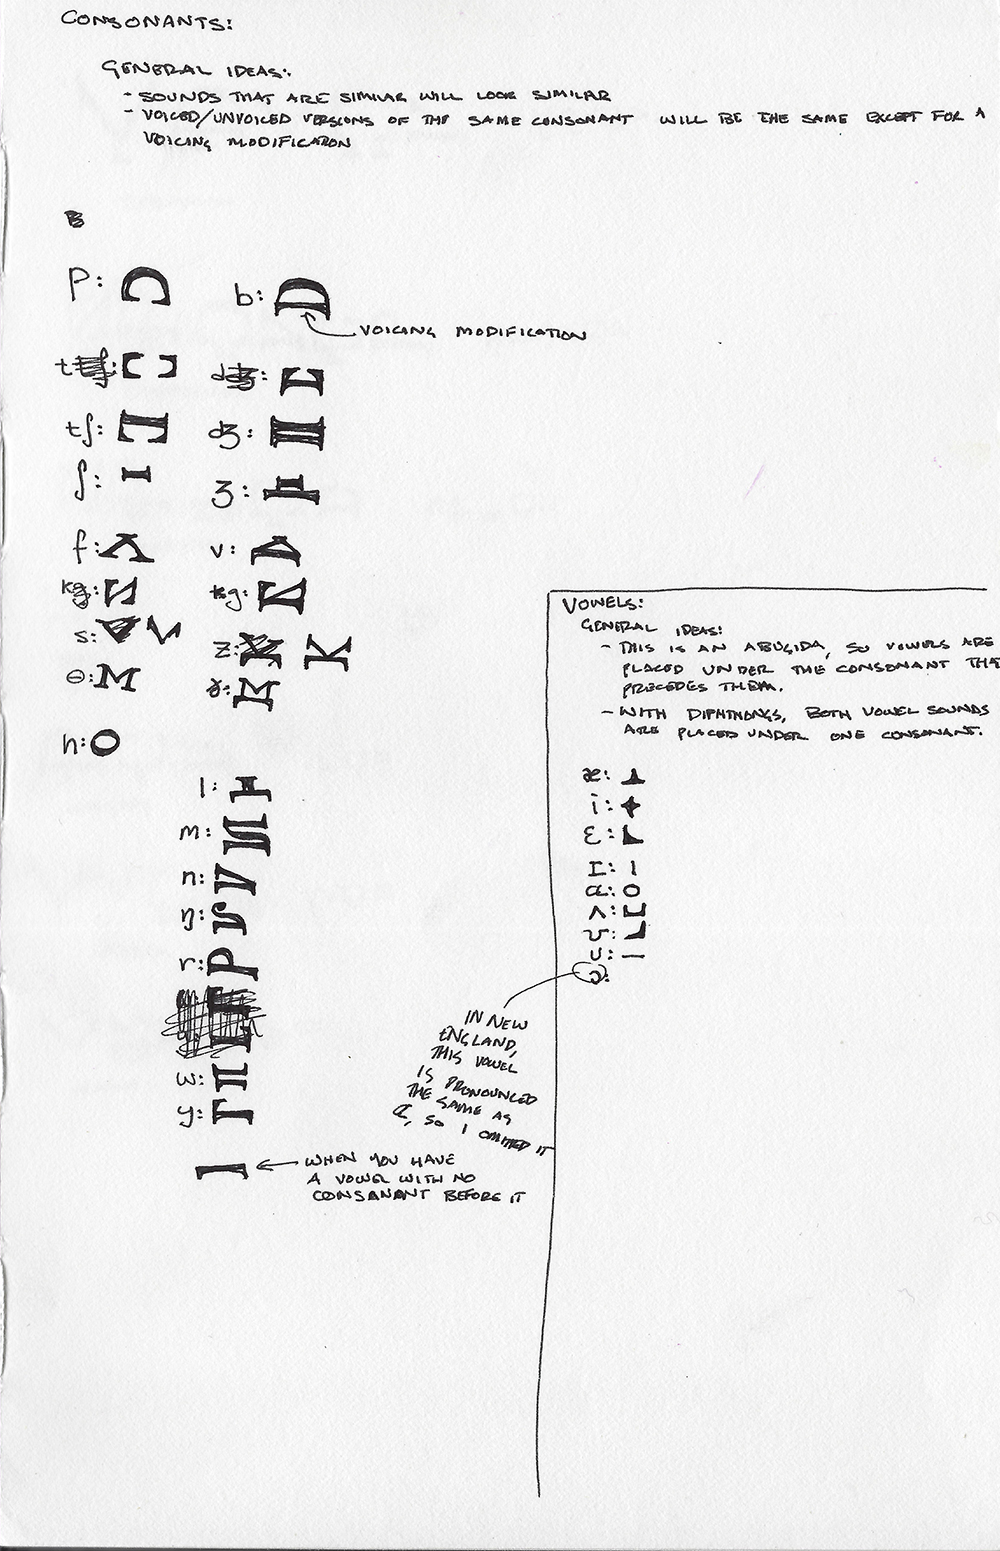 CONSONANTS:
GENERAL IDEAS:
- SOUNDS THAT ARE SIMILAR WILL LOOK SIMILAR
- VOICED/UNVOICED VERSIONS OF THE SAME CONSONANT WILL BE THE SAME EXCEPT FOR A
VOICING MODIFICATION
p: b:
VOICING MODIFICATION
t : d :
tʃ: dʒ:
ʃ: ʒ:
f: v:
k : g:
s: z:
θ:
h:
l:
m:
n:
ŋ:
r:
w:
y:
WHEN YOU HAVE
A VOWEL WITH NO
CONSANANT BEFORE IT
VOWELS:
GENERAL IDEAS:
- THIS IS AN ABUGIDA, SO VOWELS ARE
PLACED UNDER THE CONSONANT THAT
PRECEDES THEM.
- WITH DIPHTHONGS, BOTH VOWEL SOUNDS
ARE PLACED UNDER ONE CONSONANT.
æ:
i:
ɛ:
ɪ:
ɑ:
ʌ:
ʊ:
u:
ɔ:
IN NEW
ENGLAND,
THIS VOWEL
IS PRONOUNCED
THE SAME AS
ɑ, SO I OMITTED IT